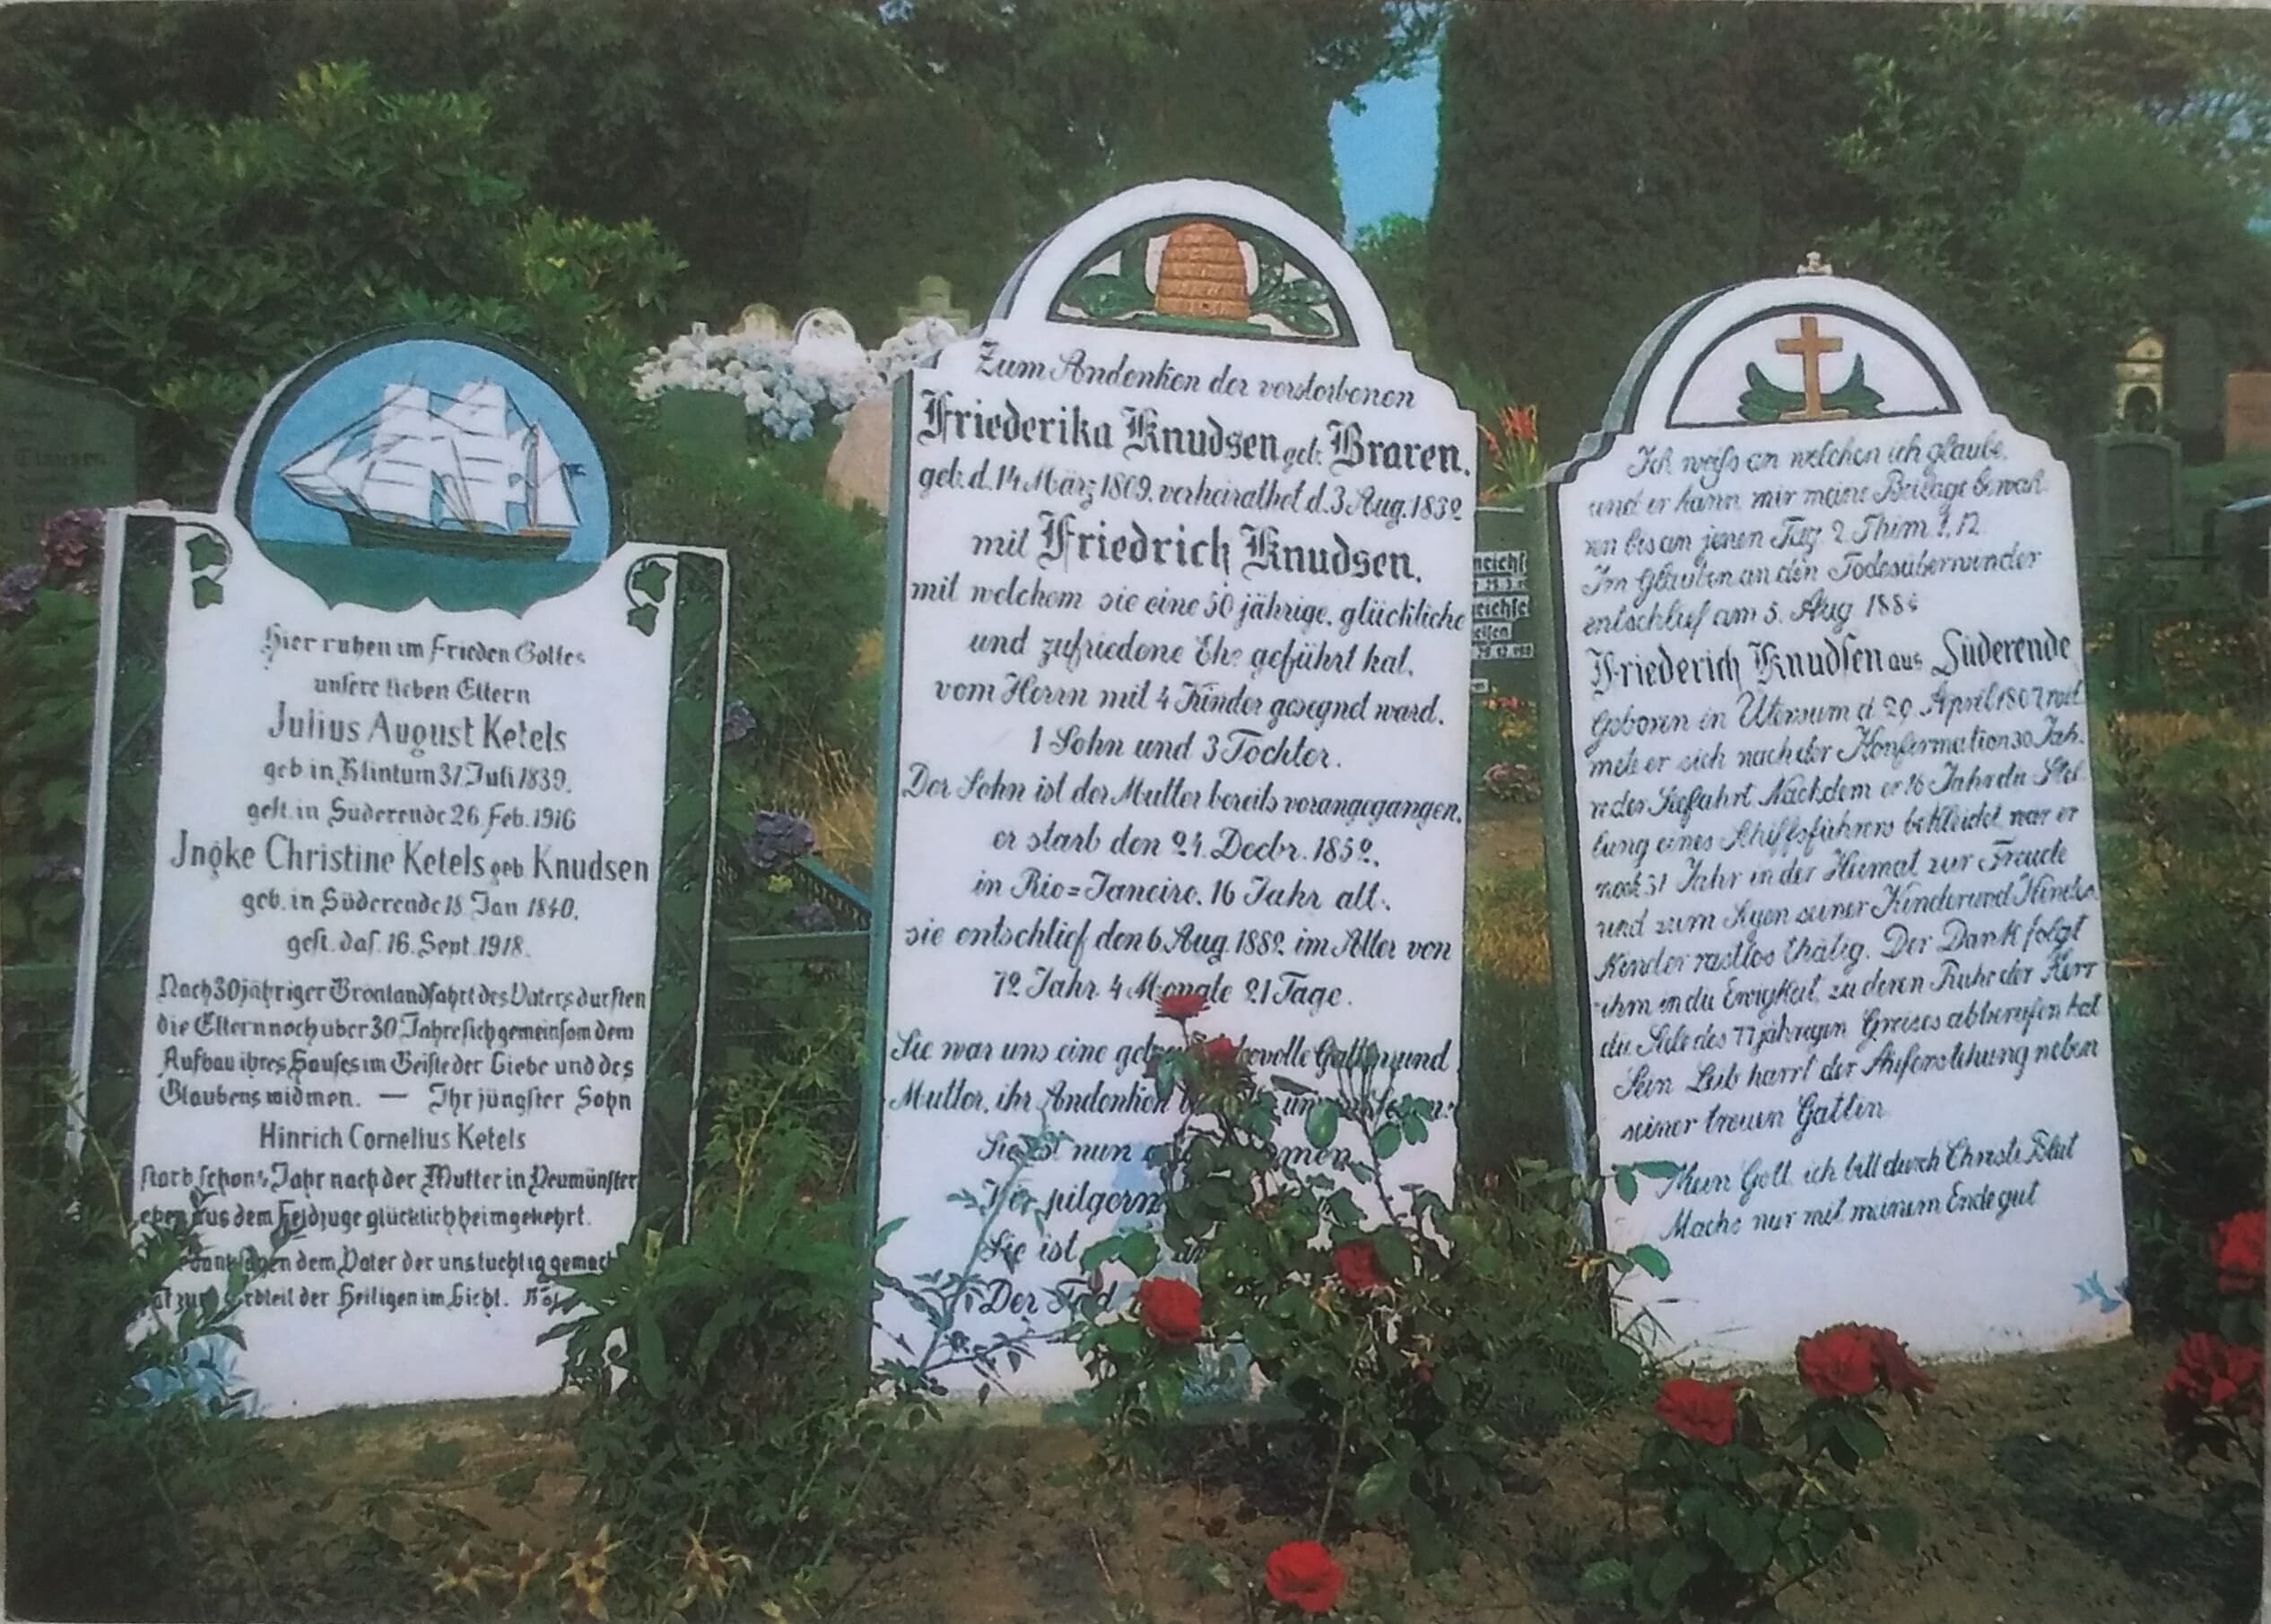 Hier ruhen im Frieden Gottes
unsere lieben Eltern
Julius August Ketels
geb in Klintum 31 Juli 1839.
gest. in Süderende 26 Feb. 1916
Ingke Christine Ketels geb Knudsen
geb. in Süderende 18 Jan 1840.
gest. das. 16. Sept. 1918.
Nach 30 jähriger Gronlandfahrt des Vaters durften
die Eltern noch über 30 Jahre sich gemeinsam dem
Aufbau ihres Hauses im Geiste der Liebe und des
Glaubens widmen. — Ihr jüngster Sohn
Hinrich Cornelius Ketels
starb schon Jahr nach der Mutter in Neumünster
eben aus dem Feldzuge glücklich heimgekehrt.
dem Vater der uns tüchtig gemacht
Erbteil der Heiligen im Licht.
Zum Andenken der verstorbenen
Friederika Knudsen geb. Braren.
geb. d. 14 März 1809. verheirathet d. 3 Aug. 1832
mit Friedrich Knudsen.
mit welchem sie eine 50 jährige, glückliche
und zufriedene Ehe geführt hat.
vom Herrn mit 4 Kinder gesegnet ward.
1 Sohn und 3 Töchter.
Der Sohn ist der Mutter bereits vorangegangen.
er starb den 24. Decbr. 1852.
in Rio=Janeiro. 16 Jahr alt.
sie entschlief den 6 Aug. 1882 im Alter von
72 Jahr 4 Monate 21 Tage.
Sie war uns eine Gattin und
Mutter, ihr Andenken
Sie ist nun
Wir pilgern
Sie ist
Der Tod
Ich weiss an welchen ich glaube,
und er kann mir meine Beilage bewah
ren bis am jenen Tag 2 Thim 1. 12
Im Glauben an den Todesüberwinder
entschlief am 5. Aug 1884
Friederich Knudsen aus Süderende
Geboren in Utersum d 29 April 1807 wid
mete er sich nach der Konfermation 30 Jah
re der Seefahrt. Nachdem er 16 Jahr die Stel
lung eines Schiffsführers bekleidet, war er
noch 31 Jahr in der Heimat zur Freude
und zum Segen seiner Kinder und Kindes
Kinder rastlos thätig. Der Dank folgt
ihm in die Ewigkeit, zu deren Ruhe der Herr
die Seele des 77 jährigen Greises abberufen hat
Sein Leib harrt der Auferstehung neben
seiner treuen Gattin
Mein Gott ich bitt durch Christi Blut
Machs nur mit meinem Ende gut